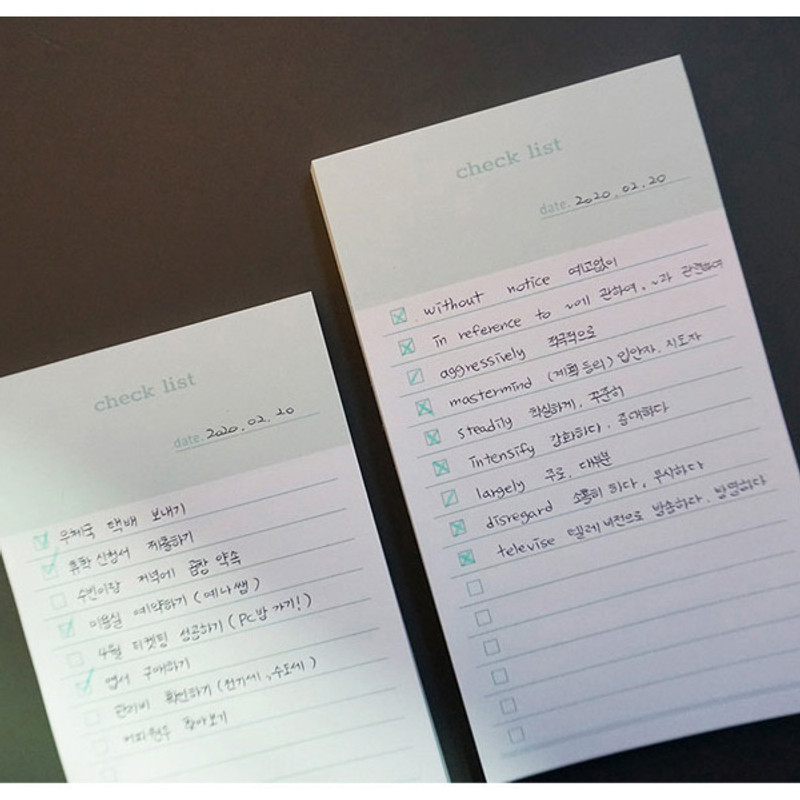 check list
date. 2020. 02. 20
우체국 택배 보내기
휴학 신청서 제출하기
수빈이랑 저녁에 곱창 약속
미용실 예약하기 (예나쌤)
4월 티켓팅 성공하기 (PC방 가기!)
엽서 구매하기
관리비 확인하기 (전기세, 수도세)
찾아보기
check list
date. 2020. 02. 20
without notice 예고없이
in reference to ~에 관하여, ~과 관련하여
aggressively 적극적으로
mastermind (계획 등의) 입안자, 지도자
steadily 착실하게, 꾸준히
intensify 강화하다, 증대하다
largely 주로, 대부분
disregard 소홀히 하다, 무시하다
televise 텔레비전으로 방송하다, 방영하다